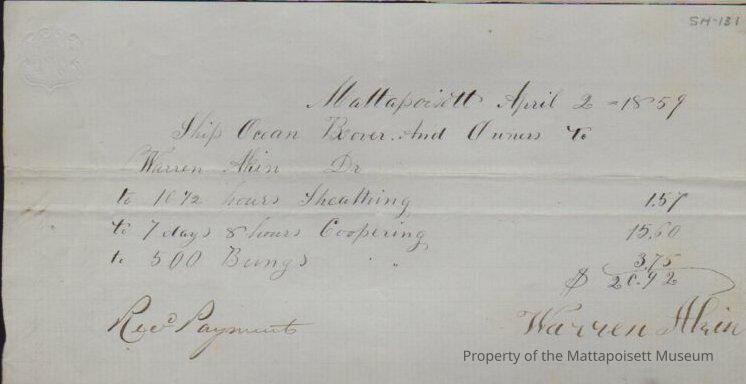 SH-131
Mattapoisett April 2 - 1859
Ship Ocean Rover And Owners to
Warren Akin Dr
to 10 1/2 hours Sheathing 1.57
to 7 days 8 hours Coopering 15.60
to 500 Bungs " 3.75
$ 20.92
Recd Payment Warren Akin
Property of the Mattapoisett Museum